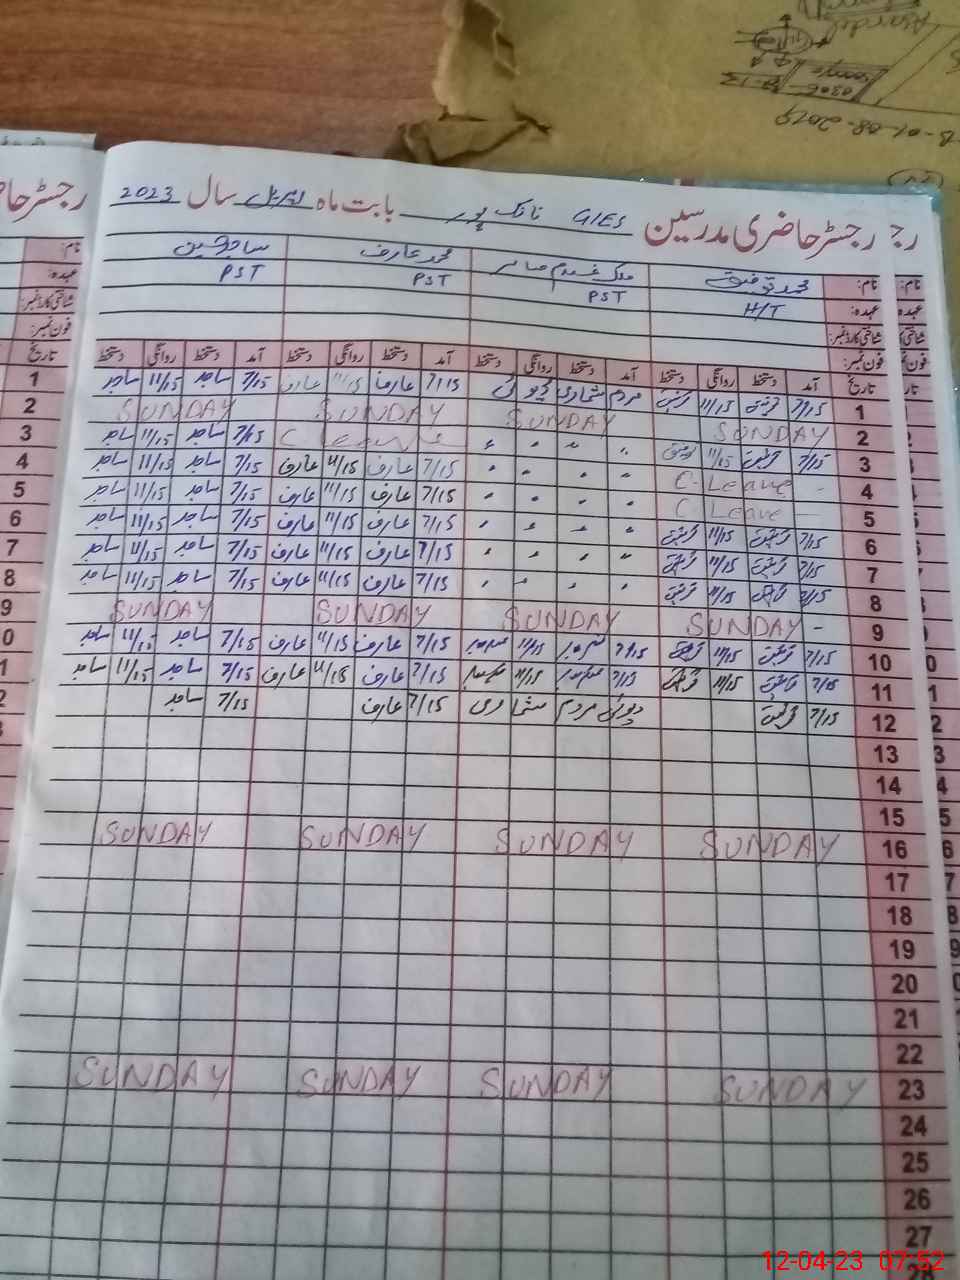 رجسٹر حاضری مدرسین GIES نانک پور بابت ماہ اپریل سال 2023
نام: محمد توفیق محمد عارف ساجد حسین
عہدہ: H/T PST PST PST
شناختی کارڈ نمبر:
فون نمبر:
تاریخ آمد دستخط روانگی دستخط آمد دستخط روانگی دستخط آمد دستخط روانگی دستخط آمد دستخط روانگی دستخط تاریخ
1 7/15 توفیق 11/15 توفیق مردم شماری ڈیوٹی 7/15 عارف 11/15 عارف 7/15 ساجد 11/15 ساجد 1
2 SUNDAY SUNDAY SUNDAY SUNDAY 2
3 7/15 توفیق 11/15 توفیق " " " " C Leave 7/15 ساجد 11/15 ساجد 3
4 C. Leave - " " " " 7/15 عارف 11/15 عارف 7/15 ساجد 11/15 ساجد 4
5 C Leave - " " " " 7/15 عارف 11/15 عارف 7/15 ساجد 11/15 ساجد 5
6 7/15 توفیق 11/15 توفیق " " " " 7/15 عارف 11/15 عارف 7/15 ساجد 11/15 ساجد 6
7 7/15 توفیق 11/15 توفیق " " " " 7/15 عارف 11/15 عارف 7/15 ساجد 11/15 ساجد 7
8 7/15 توفیق 11/15 توفیق " " " " 7/15 عارف 11/15 عارف 7/15 ساجد 11/15 ساجد 8
9 SUNDAY - SUNDAY SUNDAY SUNDAY 9
10 7/15 توفیق 11/15 توفیق 7/15 11/15 7/15 عارف 11/15 عارف 7/15 ساجد 11/15 ساجد 0
11 7/15 توفیق 11/15 توفیق 7/15 11/15 7/15 عارف 11/15 عارف 7/15 ساجد 11/15 ساجد 1
12 7/15 توفیق ڈیوٹی مردم شماری 7/15 عارف 7/15 ساجد 2
13
14
15
16 SUNDAY SUNDAY SUNDAY SUNDAY
17
18
19
20
21
22
23 SUNDAY SUNDAY SUNDAY SUNDAY
24
25
26
27
12-04-23 07:52